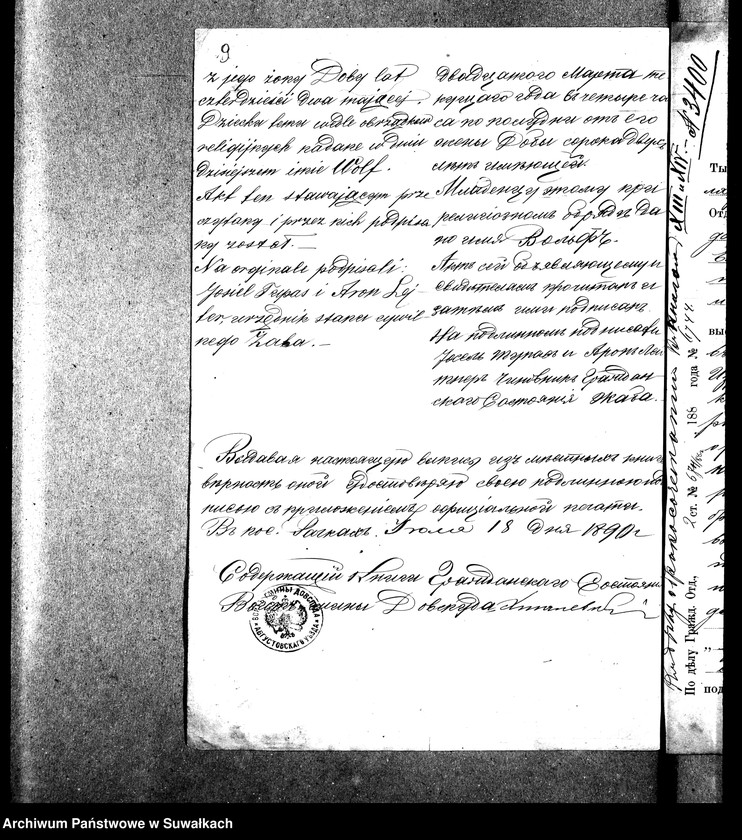 9
z jego żony Doby lat
czterdzieści dwa mającej.
Dziecku temu wedle obrządków
religijnych nadane w dniu
dzisiejszym imie Wolf.
Akt ten stawającym prze
czytany i przez nich podpisa
ny został. —
Na orginale podpisali:
Josiel Țepas i Aron Lej
ber, urzędnik stanu cywil
nego Żaba. —
двадцатого Марта те
кущаго года въ четыре ча
са по полудни отъ его
жены Добы сорокадвухъ
лѣтъ имѣющей.
Младенцу этому при
религіозномъ обрядѣ да
но имя Вольфъ.
Актъ сей объявляющему и
свидѣтелямъ прочитанъ и
затѣмъ ими подписанъ.
На подлинномъ подписали
и Аронъ Лей
Чиновникъ Граждан
скаго Состоянія Жаба.
Выдавая настоящую выпись изъ книгъ
вѣрность оной удостовѣряю своею подлинною под
писью съ приложеніемъ оффиціальной печати.
Въ пос. Рачкахъ. Іюля 18 дня 1890 г
Содержащій Книги Гражданскаго Состоянія
Войтъ Гмины Довспуда
ГМИНЫ ДОВСПУДА
АВГУСТОВСКАГО УѢЗДА
XIII и XIV — № 3400
По дѣлу Гражд. Отд., 2 ст. № 188 года №
Archiwum Państwowe w Suwałkach